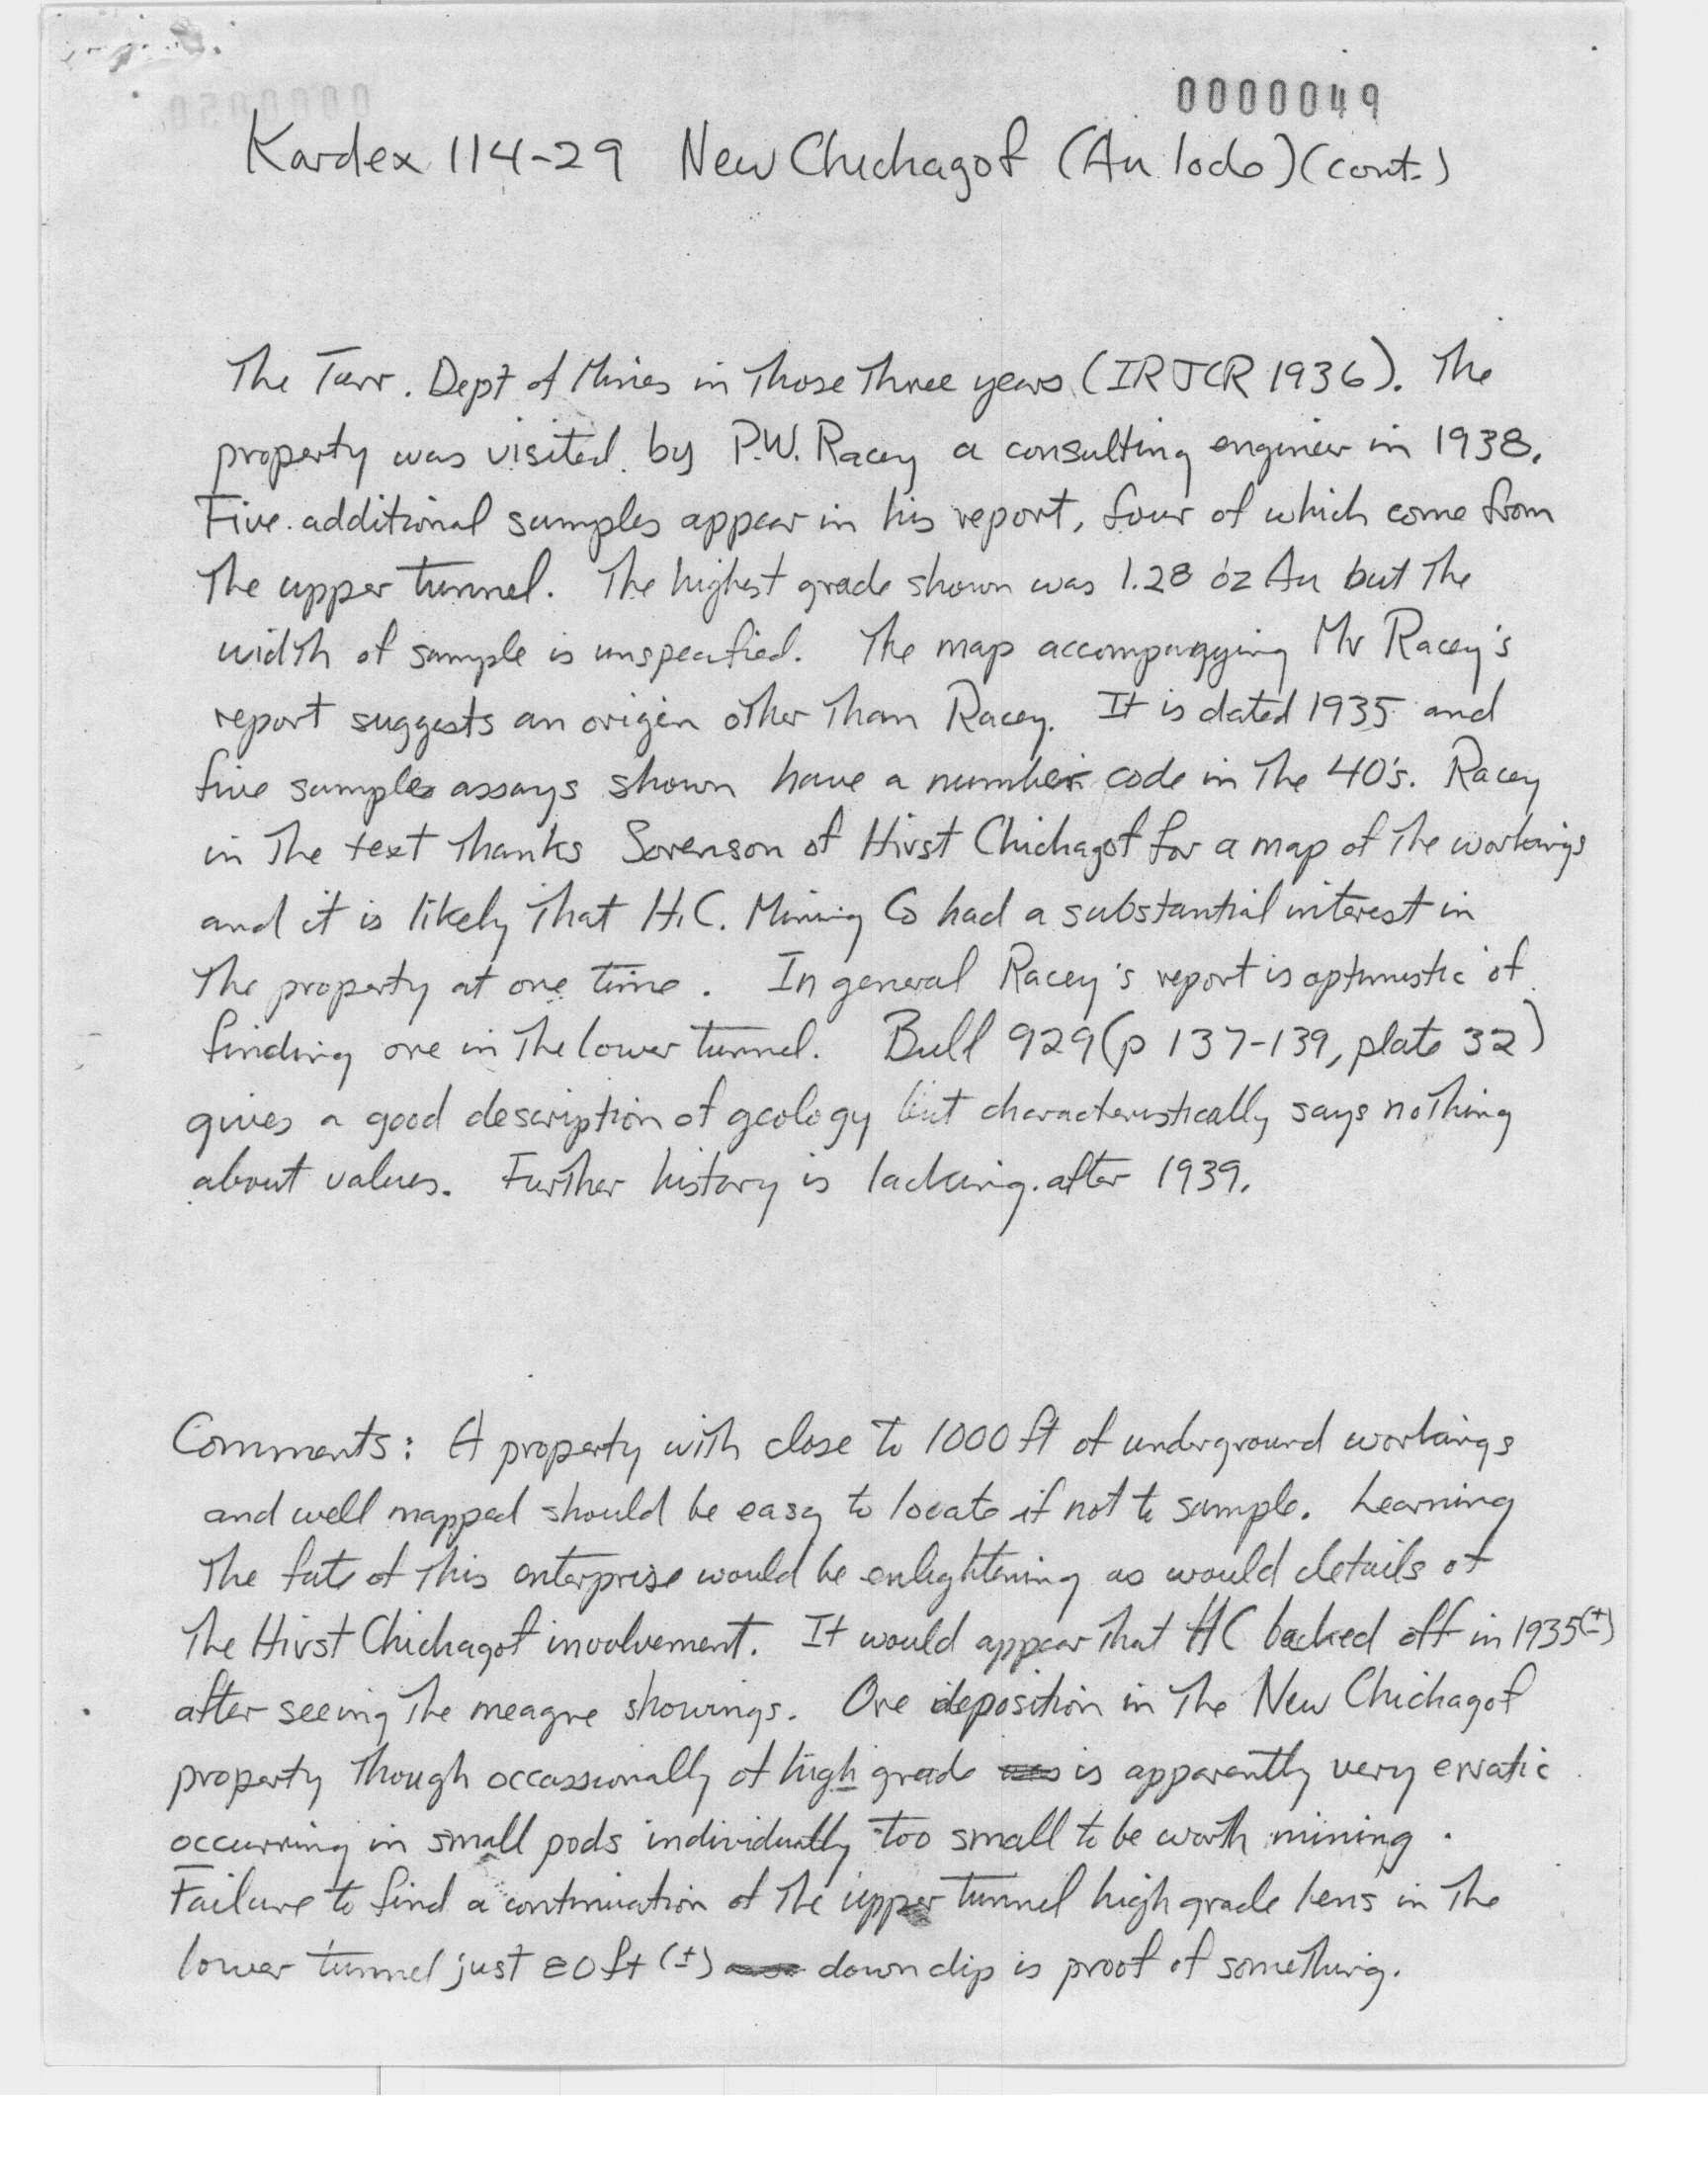 0000049
Kardex 114-29 New Chichagof (Au lode) (cont.)
The Terr. Dept of Mines in those three years (IR JCR 1936). The
property was visited by P.W. Racey a consulting engineer in 1938.
Five additional samples appear in his report, four of which come from
the upper tunnel. The highest grade shown was 1.28 oz Au but the
width of sample is unspecified. The map accompanying Mr Racey's
report suggests an origin other than Racey. It is dated 1935 and
five samples assays shown have a number code in the 40's. Racey
in the text thanks Sorenson of Hirst Chichagof for a map of the workings
and it is likely that H.C. Mining Co had a substantial interest in
the property at one time. In general Racey's report is optimistic of
finding ore in the lower tunnel. Bull 929 (p 137-139, plate 32)
gives a good description of geology but characteristically says nothing
about values. Further history is lacking after 1939.
Comments: A property with close to 1000 ft of underground workings
and well mapped should be easy to locate if not to sample. Learning
the fate of this enterprise would be enlightening as would details of
the Hirst Chichagof involvement. It would appear that HC backed off in 1935(±)
after seeing the meagre showings. Ore deposition in the New Chichagof
property though occassionally of high grade is apparently very erratic
occurring in small pods individually too small to be worth mining.
Failure to find a continuation of the upper tunnel high grade lens in the
lower tunnel just 80 ft (±) down dip is proof of something.